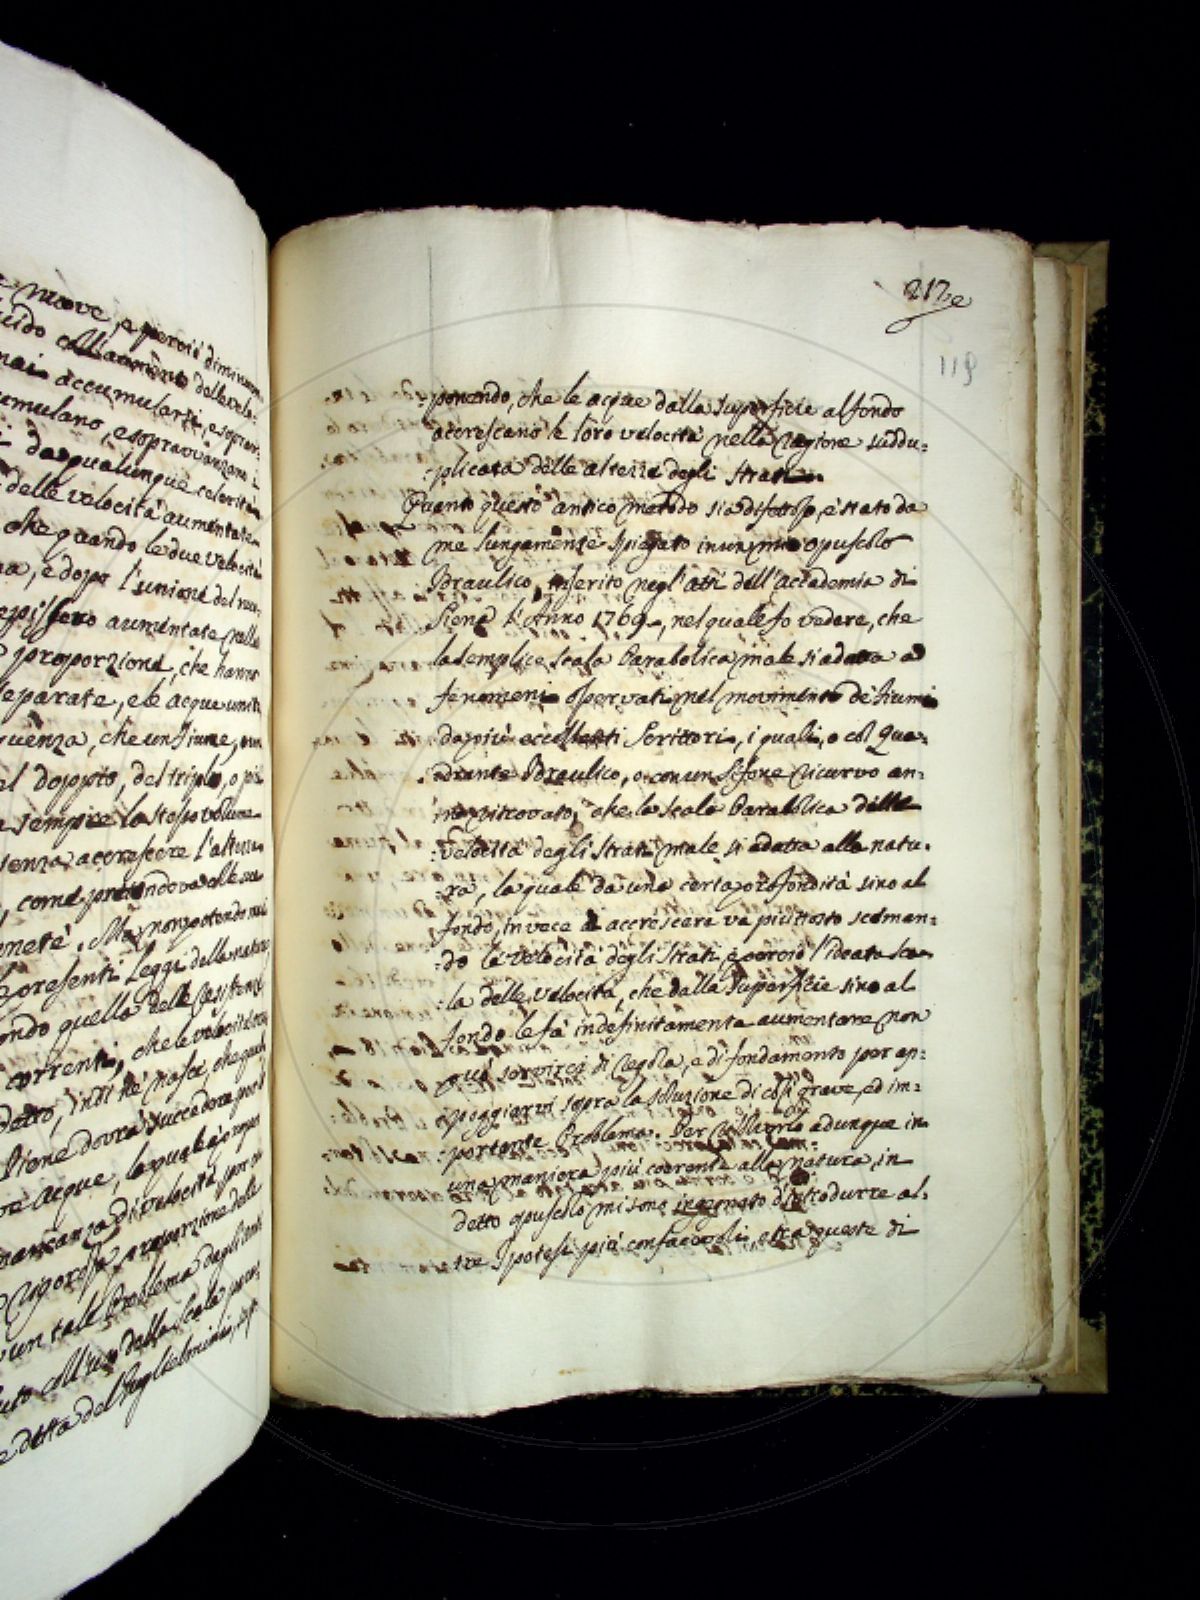 e nuove, e perciò diminuen
uido coll'aumento delle velo:
mai accumularsi, e soprav
umulano, e sopravvanzano i
da qualunque celerità
delle velocità aumentate
che quando le due velocità
na, e dopo l'unione del
epissero aumentate nella
proporzione, che hanno
separate, e le acque unite
uenza, che un fiume, con
al doppio, del triplo, o più
a sempre lo stesso volume
senza accrescere l'altezza
, come pretendova
enetà. Ma non potendo mai
presenti leggi della natura
ondo quella delle resistenze
correnti, che le velocità
detto, indi nè nasce, che
Piene dovrà succadere per l'
ve acque, la quale
mancanza di velocità, per
rigorosa proporzione delle
un tale Problema dagli
uto coll'uso della scala para
detta del Guglielmini,
212
119
:ponendo, che le acque dalla superficie al fondo
accrescano le loro velocità nella ragione suddu:
:plicata delle altezze degli strati.
Quanto questo antico metodo sia difettoso, è stato da
me lungamente spiegato in un mio opuscolo
Idraulico, inserito negl'atti dell'accademia di
Siena l'Anno 1769, nel quale fo vedere, che
la semplice scala Parabolica male si adatta ad
fenomeni osservati nel movimento de' fiumi
da più eccellenti Scrittori, i quali, o col Qua:
:drante Idraulico, o con un sifone ricurvo an:
:no ritrovato, che la scala Parabolica delle
:velocità degli strati male si adatta alla natu:
:ra, la quale da una certa profondità sino al
fondo, in vece di accrescere va piuttosto sceman:
:do le velocità degli strati, e perciò l'ideata sca:
:la delle velocità, che dalla superficie sino al
fondo le fà indefinitamente aumentare non
può servirci di regola, e di fondamento per ap:
:poggiarvi sopra la soluzione di così grave, ed im:
:portante Problema. Per risolverlo adunque in
una maniera più coerente alla natura, in
detto opuscolo mi sono ingegnato d'introdurre al:
:tre Ipotesi più confacevoli, e tra queste di